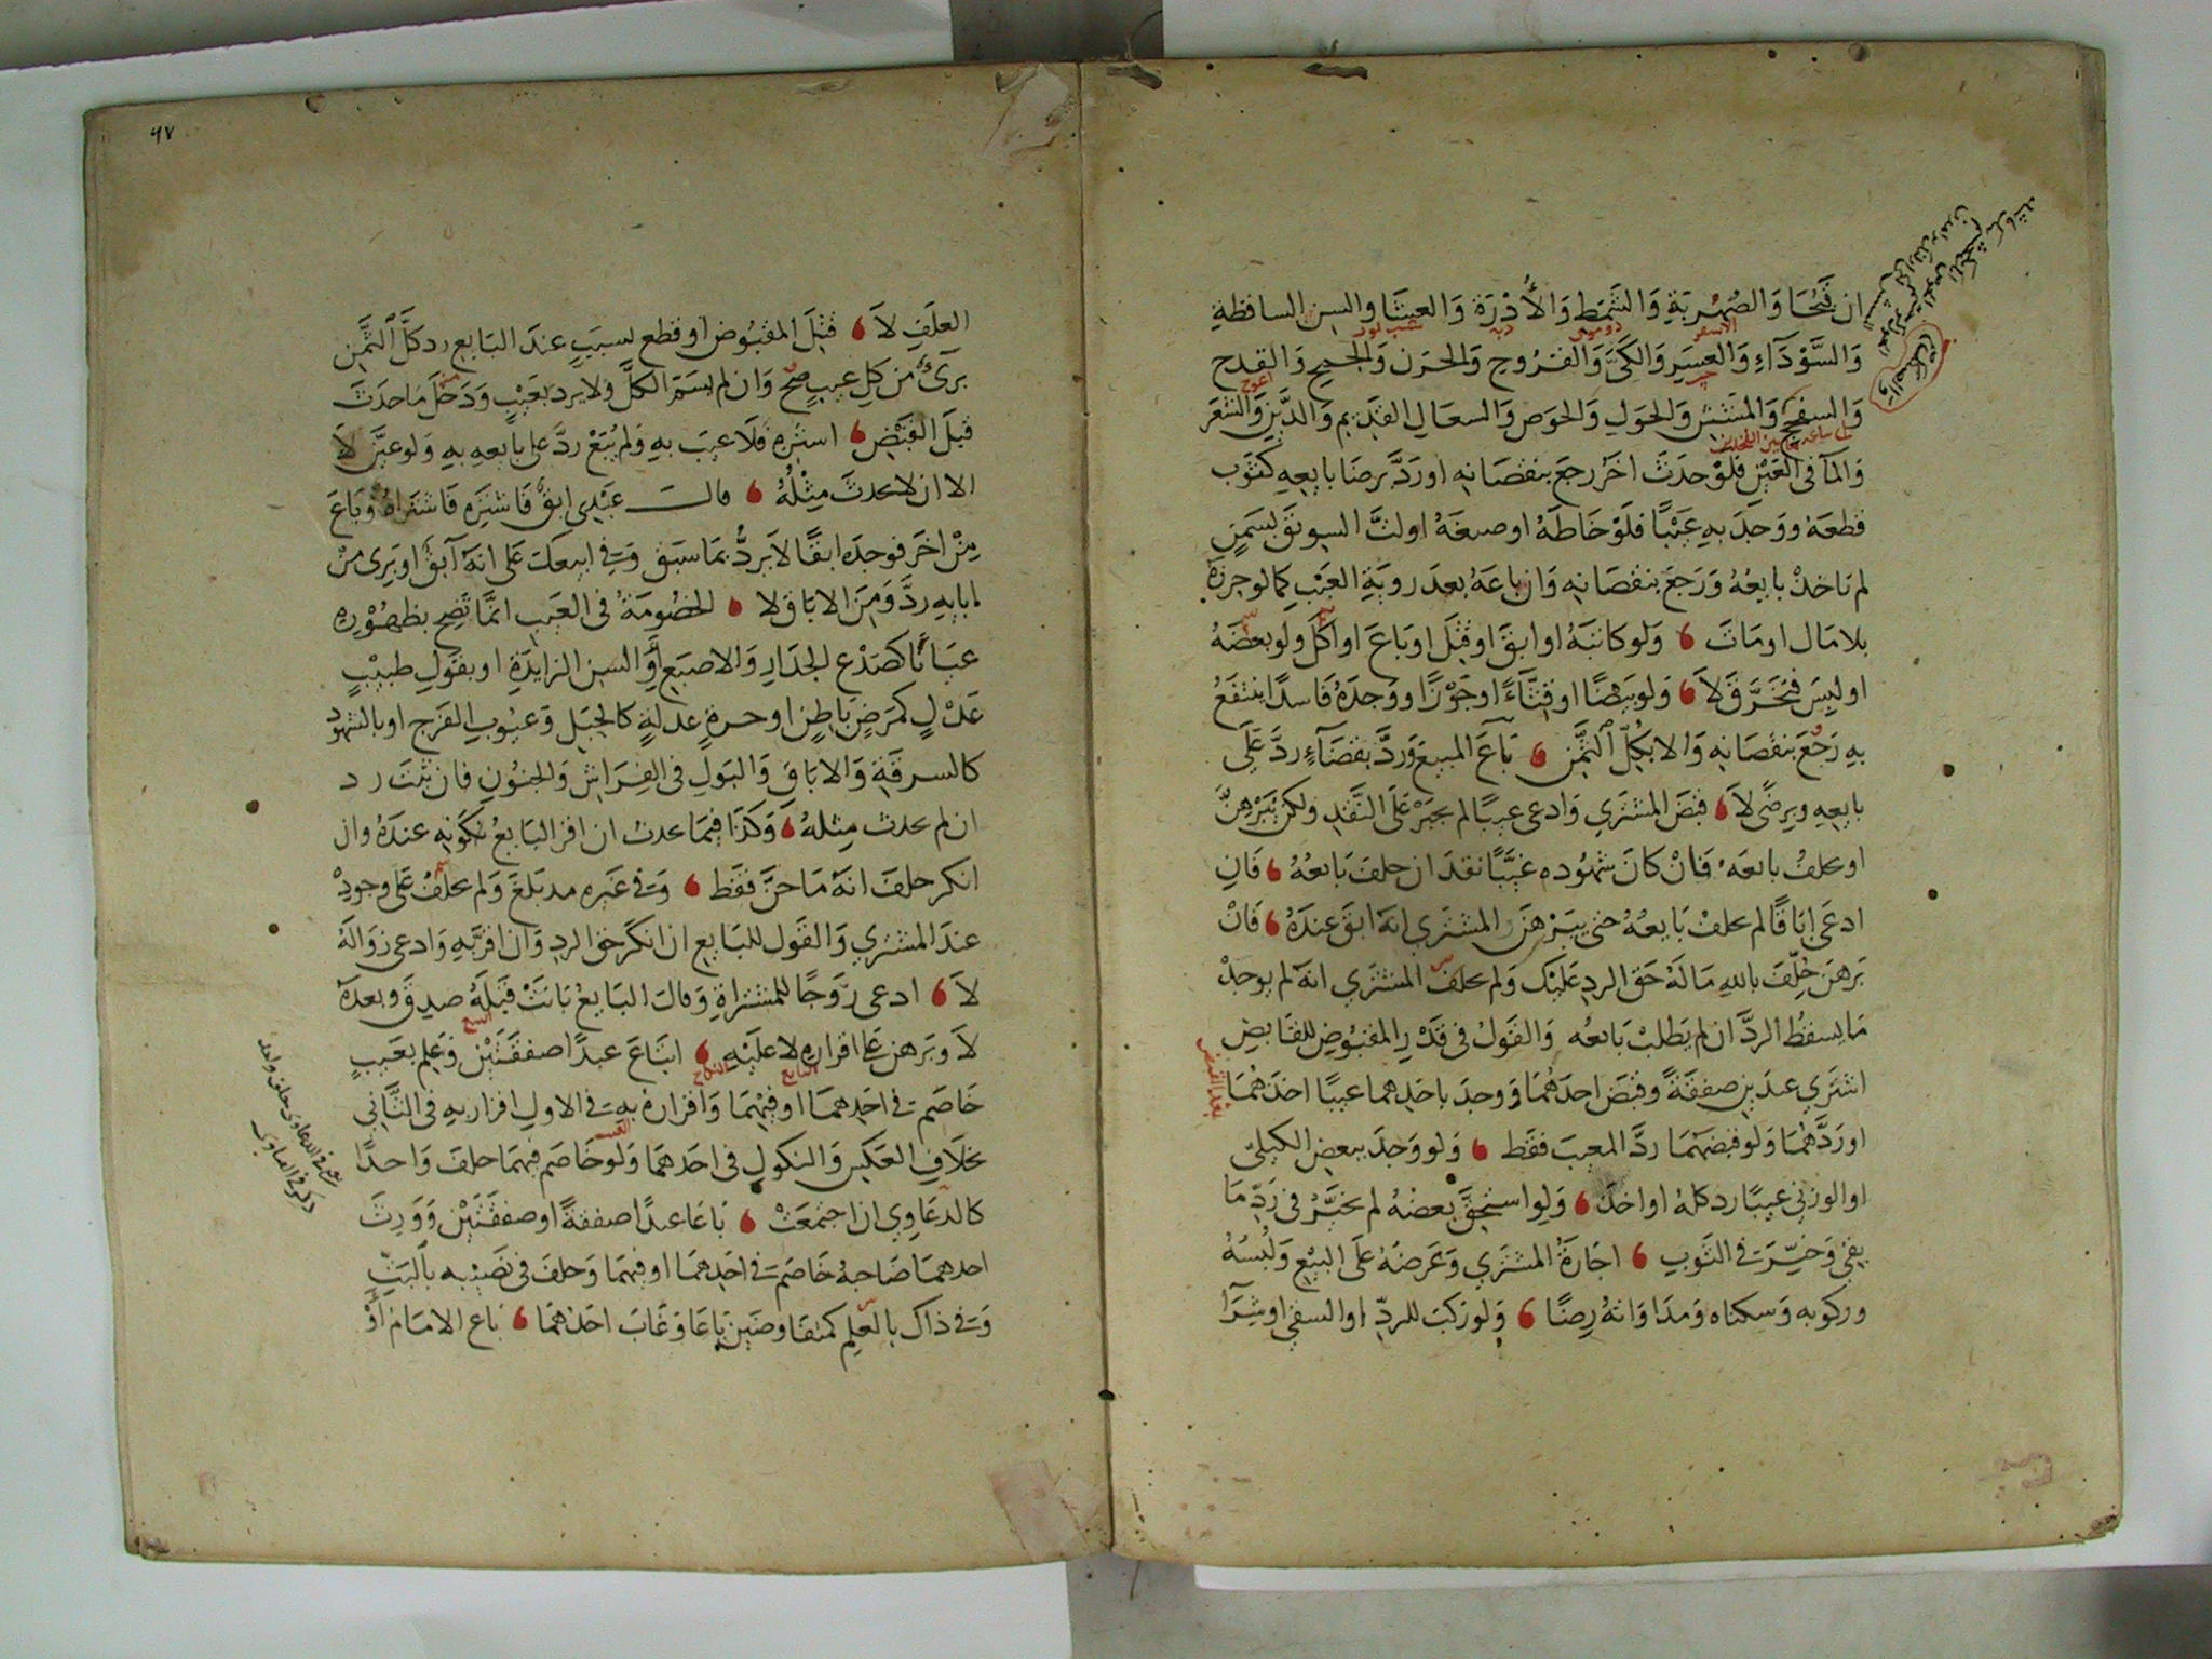 ان فَحُشَا وَالصُهُوبَةِ وَالشَمَطِ وَالأُدْرَة وَالعَشَا والسِن الساقطةِ
وَالسَّوْدَاءِ وَالعسَرِ وَالكَىِّ وَالقُرُوحِ وَالحَرَن وَالجمح وَالقدح
وَالسفح وَالمنتشر وَالحَوَلِ وَالحَوَص وَالسعَالِ القَدِيم وَالدَّين وَالشعَر
وَالمَآ فى العَيْن فلوْ حدَثَ اخَر رجع بنقصَانِهِ اورَدَّ برضَا بايعِهِ كثوَب
قطعَهُ ووَجدَ بهِ عَيْبًا فلَوْ خَاطَهُ او صبغهُ اولتَّ السويقَ بسَمنٍ
لم يَاخذْ بايعُهُ وَرَجعَ بنقصَانِهِ وَان باعَهُ بعدَ رويَةِ العَيْبِ كمالو حررَهُ
بلا مَال اومَاتَ وَلو كاتبَهُ او ابقَ اوقتلَ او بَاعَ او اكلَ ولو بعضَهُ
او لبِسَ فتخَرَّقَ لاَ وَلو بَيْضًا او قِثَّآءً او جَوْزًا ووجدَهُ فاسدًا ينتفَعُ
بِهِ رَجَعَ بنقصَانِهِ وَالا بكلِّ الثَّمَنِ بَاعَ المبِيعَ وَرُدَّ بقضَآءٍ ردَّ عَلَى
بايعِهِ وبِرضًى لاَ قبضَ المشتَري وَادعى عيبًا لم يجبَرْ عَلَى النَّقدِ ولكن يُبَرْهِنُ
او يحلفُ بائعَهُ فَانْ كانَ شهُوده غيَّبًا نقدَ ان حلفَ بَائعُهُ فَانِ
ادعَى ابَاقًا لم يحلفْ بَايعُهُ حتى يبَرْهِنَ المشترِي انهُ ابقَ عِندَهُ فَانْ
بَرهنَ حُلِّفَ باللهِ مَا لَهُ حَق الردِ عَليْكَ وَلم يحلف المشتَري انهُ لم يوجِدْ
مَا يسقطُ الردَّ ان لم يَطلبْ بَائعُه وَالقَولُ فى قَدْرِ المقبُوضِ للقَابضِ
اشترَي عبدَيْنِ صفقَةً وقبَضَ احدَهُمَا وَوجدَ باحَدِهما عيبًا اخذَهُمَا
اورَدَّهُمَا وَلو قبضهُمَا ردَّ المعِيبَ فقط وَلو وَجدَ ببعضِ الكيليّ
او الوزني عيبًا رد كلهُ او اخذَ وَلوِ استُحِقَّ بعضهُ لم يخَيَّرْ فى رَدِّ مَا
بقى وَخيِّرَ فى الثَوبِ اجَارَةُ المشترِي وَعَرضهُ عَلَى البَيْعِ وَلُبْسُهُ
وركوبه وَسكناه وَمدَاوَاتهُ رِضًا وَلو رَكبَ للردِّ او السقي او شِرَآ
العلَفِ لاَ قُتلَ المقبُوض او قطع بسببٍ عندَ البَايع رد كلَّ الثَّمَنِ
برَىَ من كلِ عيبٍ صحَّ وَان لم يسَمِّ الكلَّ ولا يرد بعَيْبٍ وَدَخلَ مَا حدَثَ
قبلَ القَبْضِ اشتَرِهِ فلاَ عيبَ بهِ وَلم يُبَعْ ردَّ عَلى بايعِهِ بهِ وَلو عيَّنَ لاَ
الا ان لا يحدثَ مِثْلُهُ قالـــ عَبْدِى ابقٌ فَاشتَرِه فَاشتَرَاهُ وَبَاعَ
مِنْ اخَر فوجدَه ابقًا لاَ يَردُّ بمَا سبَقَ وَفى ابيعكَ عَلى انهُ آبقٌ او بَرِىَ مِنْ
ابَاقِهِ ردَّ وَمِنَ الابَاقِ لا الخصُومَةُ فى العَيبِ انمَا تَصِح بظهُوْرِهِ
عيَانًا كصَدْع الجدَارِ وَالاصبَعِ أوِ السِنِ الزايدَةِ او بقَولِ طبيْبٍ
عَدْلٍ كمَرضٍ بَاطنٍ او حرةٍ عدلةٍ كالحَبلِ وَعيُوبِ الفَرج او بالشهُود
كالسرقَةِ وَالابَاقِ وَالبَولِ فى الفِرَاشِ وَالجنُونِ فان ثبتَ رد
ان لم يحدث مِثلهُ وَكَذَا فيمَا يحدث ان اقر البَايعُ بكونِهِ عندَهُ وان
انكر حلفَ انهُ مَا جنَّ فقَط وَفى غَيره مد بَلَغَ وَلم يحلَّفْ عَلى وجودِهْ
عندَ المشترِي وَالقَول للبَايع ان انكرَ حق الردِ وَان اقرَّ بِهِ وَادعى زوَالَهُ
لاَ ادعى زَوَجًا للمشتراةِ وَقالَ البَايعُ بَانتْ قبْلَهُ صدِقَ وبعدَهُ
لاَ وبَرهن عَلى اقرارِهِ لا عليْهِ ابتَاعَ عبدًا صفقَتَيْنِ وَعلم بعَيبٍ
خَاصَمَ فى احَدِهمَا او فيْهِمَا وَاقرارهُ بِهِ فى الاولِ اقرار بِهِ فى الثَّاني
بخلاَفِ العَكسِ وَالنكولِ فى احَدهمَا وَلو خَاصَم فيهمَا حلفَ وَاحدًا
كالدعَاوِي ان اجتمعَتْ بَاعَا عبدًا صفقةً او صفقَتَيْن وَوَرِثَ
احدهمَا صَاحبهُ خَاصَم فى احَدِهمَا او فيهمَا وَحلفَ فى نَصِيْبِهِ بالبَتِّ
وَفى ذاكَ بالعلِم كمتفَاوضَيْن بَاعَا وَغَابَ احَدهمَا بَاع الامَام أوْ